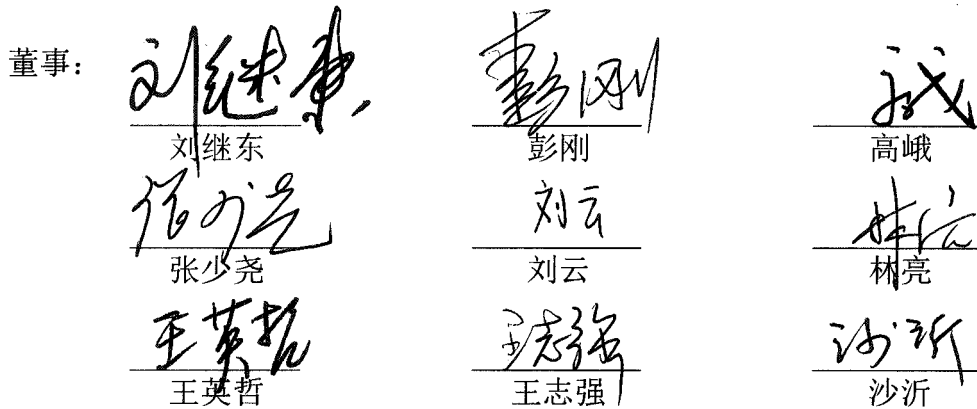 董事： 刘继东 彭刚 高峨
刘继东 彭刚 高峨
张少尧 刘云 林亮
张少尧 刘云 林亮
王英哲 王志强 沙沂
王英哲 王志强 沙沂